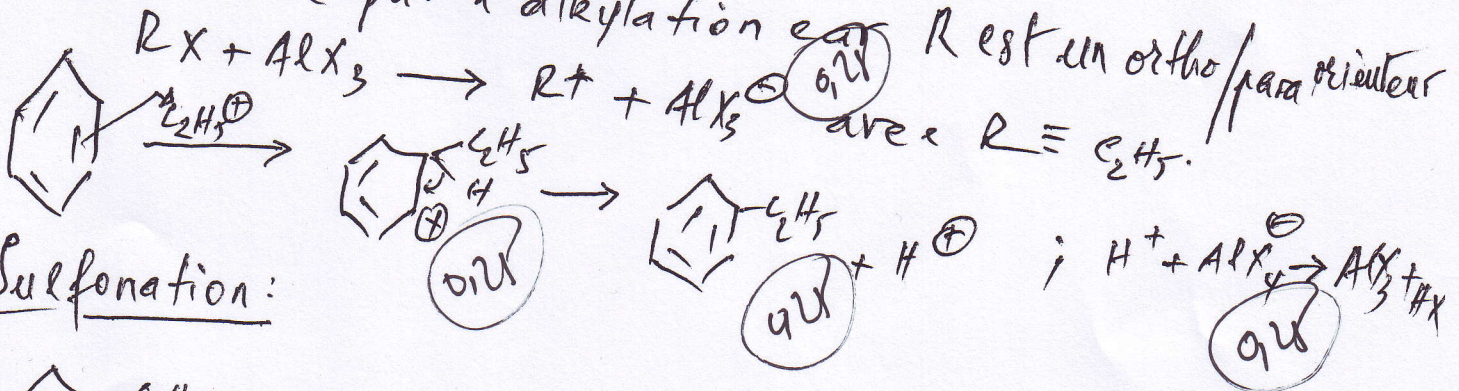 alkylation car R est un ortho/para orienteur
RX + AlX₃ → R⁺ + AlX₃⊖ (0,25) avec R ≡ C₂H₅.
C₂H₅⊕ → C₂H₅ H ⊕ (0,25) → C₂H₅ (0,25) + H⊕ ; H⁺ + AlX₄⊖ → AlX₃ + HX (0,25)
Sulfonation :